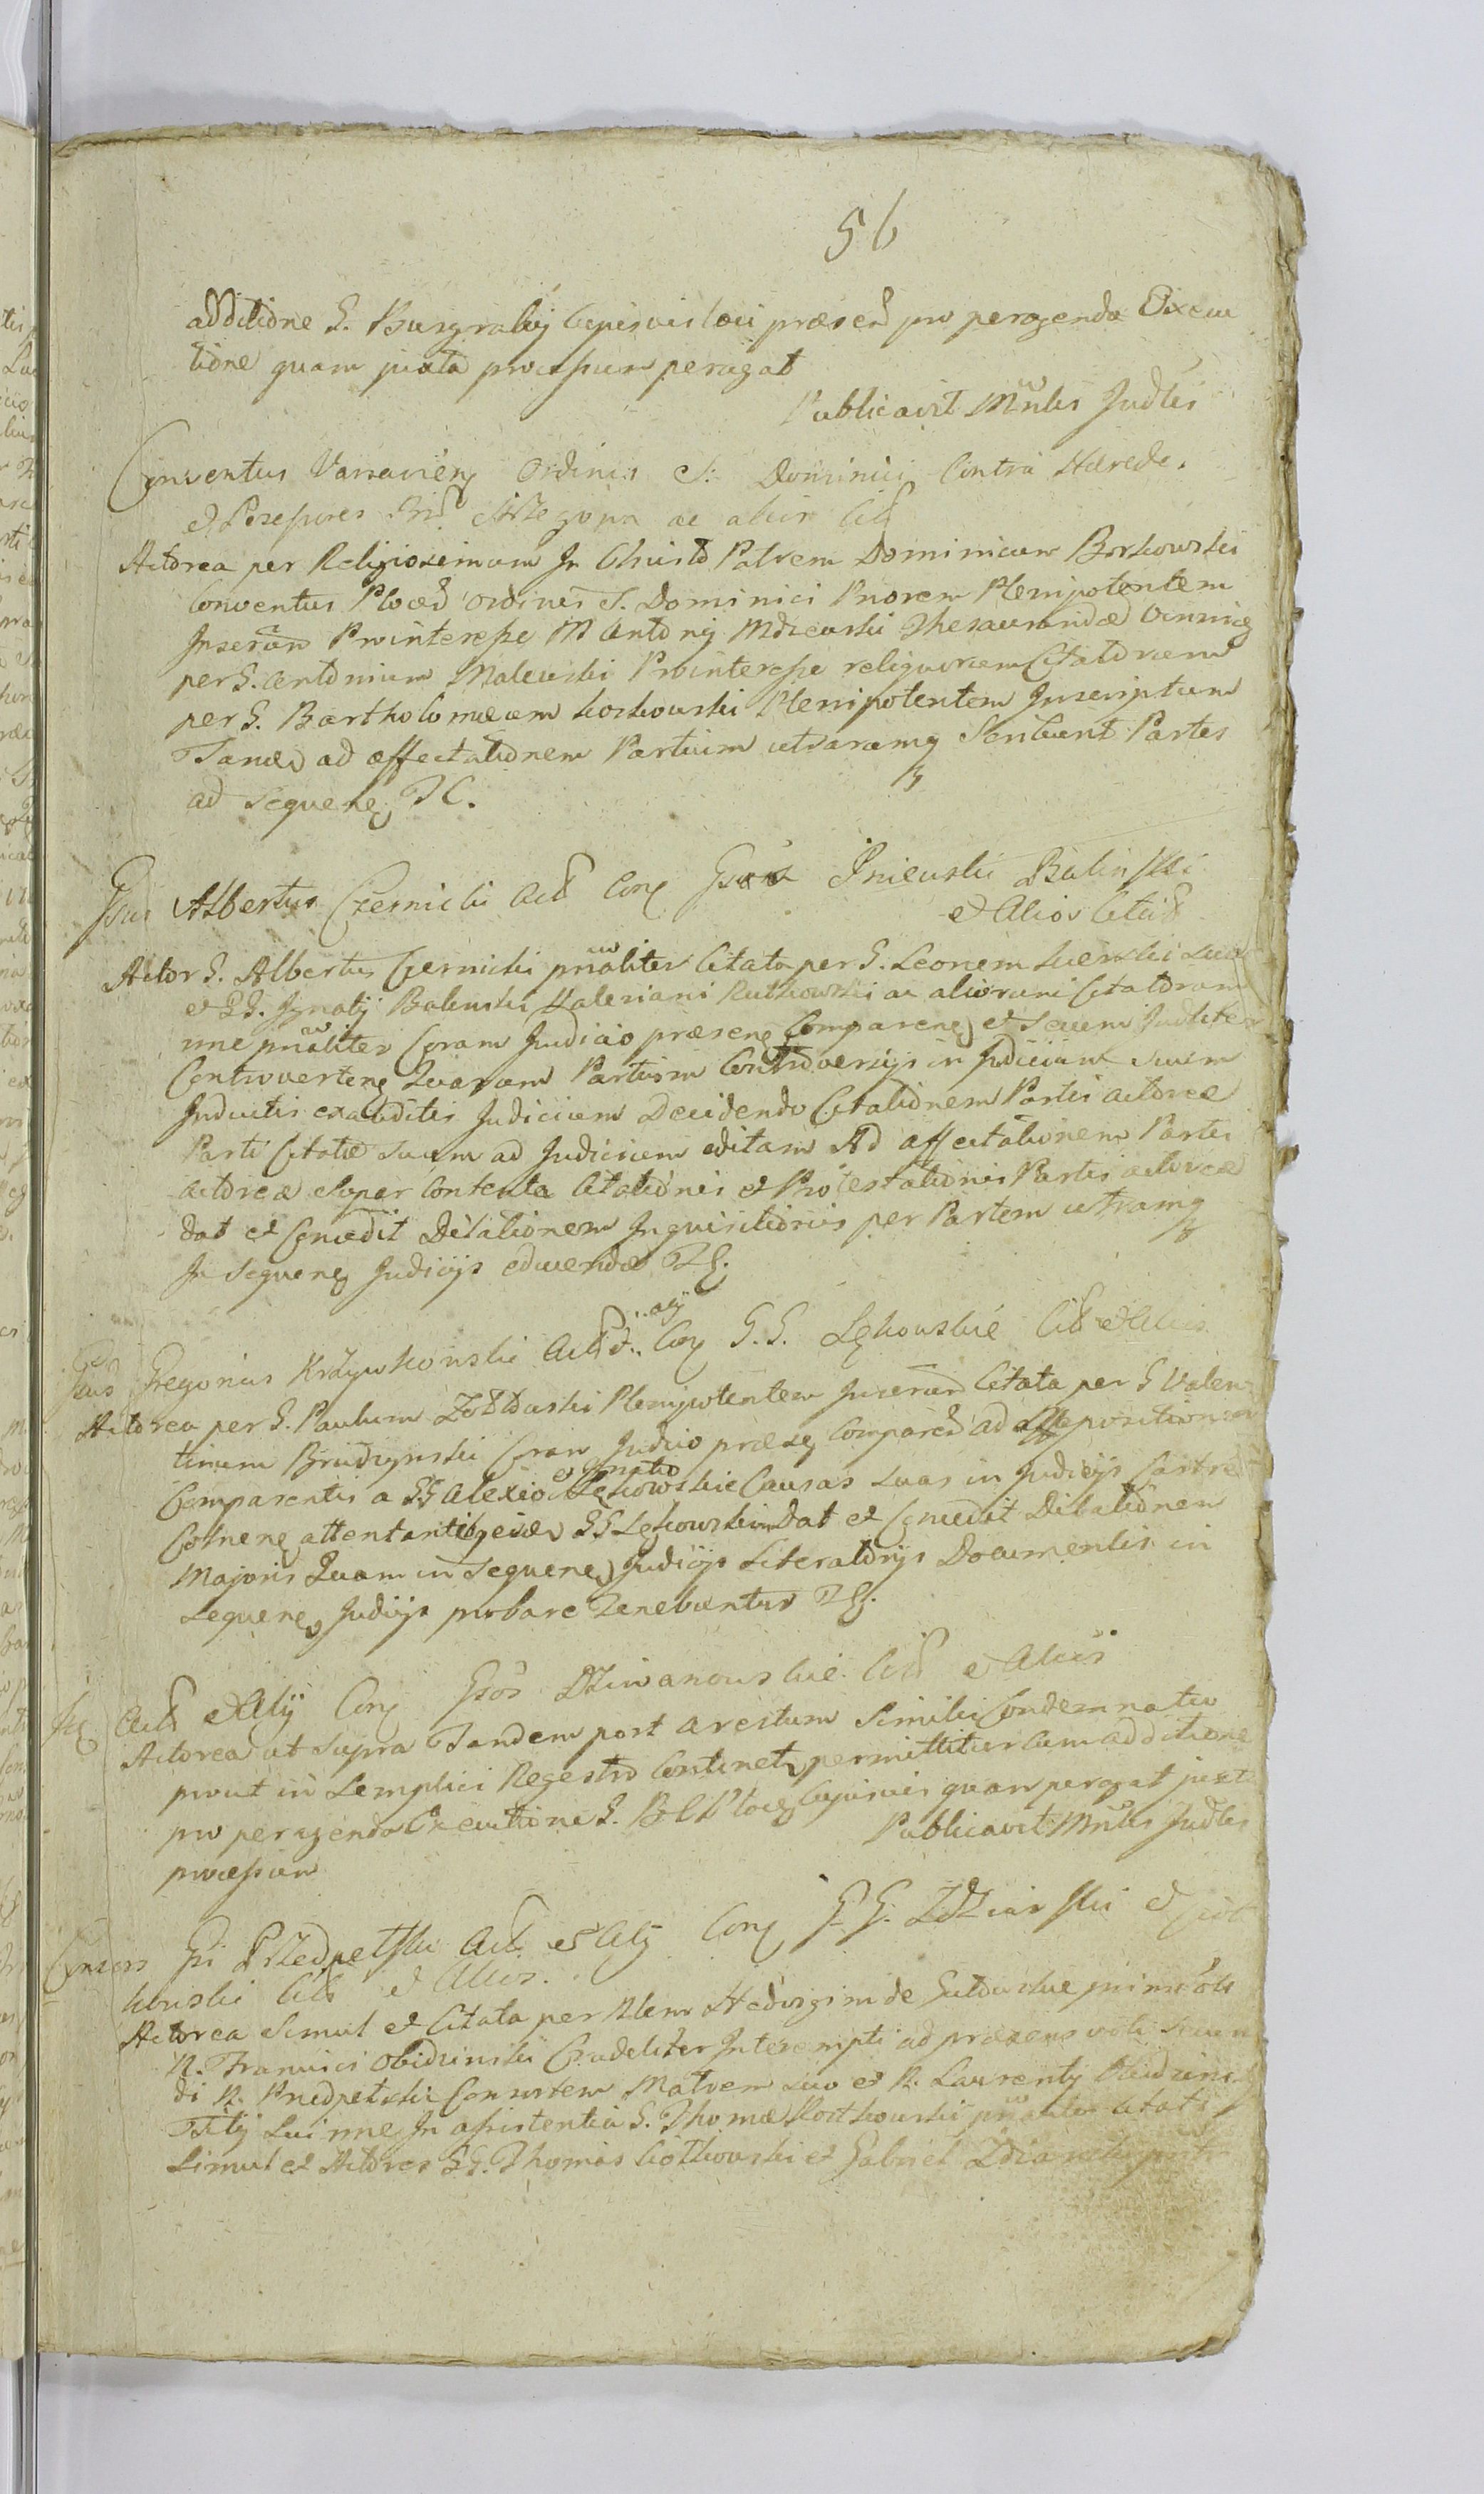 56
additione G. Burgrabij cujusvis loci præsen pro peragenda Execu
tione quam juxta processum peragat
Publicavit Mnlis Judlis
Conventus Varsavien Ordinis S. Dominici Contra Hærede.
et Possessores ac alios Cit
Actorea per Religiosimum In Christo Patrem Dominicum Borkowski
Conventus Ploceñ Ordinis S. Dominici Priorem Plenipotentem
Inserūm Prointeresse M Antonij Thesaurarij
per G. Antonium Malewski Prointeresse reliquorum Citatorum
per G. Bartholomæum Koskowski Plenipotentem Inscriptum
Tandē ad affectationem Partium utrarumq Scribent Partes
ad sequeñ TC.
Gsus Albertus Czernicki Act Con Gsos Pniewskie Balinskie
et Alios Citat
Actor G. Albertus Czernicki pnaliter Citata per G. Leonem
et GG. Ignatij Balinski Valeriani Rutkowski ac aliorum Citatorum
nne pnaliter Coram Judicio præsenq Comparenq et secum Judliter
Controvertenq Quarum Partium Controversijs in Judicium suum
Inductis exauditis Judicium Decidendo Citationem Partis actoreæ
Parti Citatæ suum ad Judicium editam Ad affectationem Partis
actoreæ super Contenta Citationis et Protestationis Partis actoreæ
dat et Concedit Dilationem Inquisitionis per Partem utramq
In sequenq Judicijs educendæ TC.
Gsus Gregorius Krzywkowski Act et alij Con G.G. Lękowskie Cit et Alios
Actorea per G. Paulum Plenipotentem Inserum Citata per G Valen
tinum Brudzynski Coram Judicio præsenq Compareñ ad affepositionem
Comparentis a GG Alexio et Ignatio Lękowskie Causas suas in Judicijs Castren
GG Lękowskim Dat et Concedit Dilationem
Majoris Quam in sequenq Judicijs Literatorijs Documentis in
sequenq Judicijs probare Tenebuntur TC.
Act et Alij Con Gsos Dziwanowskie Cit et Alios
Actorea ut supra Tandem post arestum Simili Condemnatio
prout in Semplici Regestro Continet permittitur Cum additione
pro peragenda Executione G. B C Ploceñ Cujusvis quam peragat juxta
processum
Publicavit Mnlis Judlis
Consors Gsi Przedpełski Act et Alij Con G.G. Zdziarski et Kot
kowski Cit et Alios.
Actorea simul et Citata per Hedvigim de primi voti
N. Francisci Obidzinski Crudeliter Interempti ad præsens voti secun
di N. Przedpełski Consortem Matrem suo et N. Laurentij Obidzinski
Filij sui nne In assistentia G. Thomæ Rostkowski pnaliter Citati
simul et Actores GG. Thomas Kotkowski et Gabriel Zdziarski